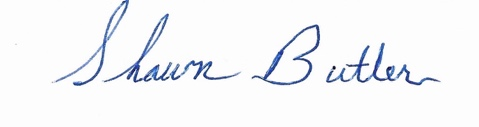 Shawn Butler